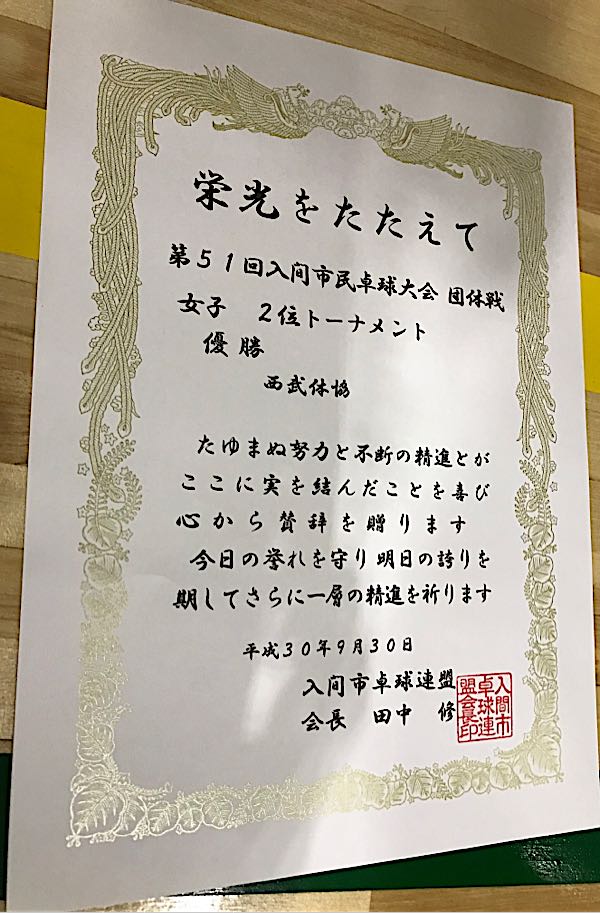 栄光をたたえて
第５１回入間市民卓球大会 団体戦
女子　２位トーナメント
優勝
西武体協
たゆまぬ努力と不断の精進とが
ここに実を結んだことを喜び
心から賛辞を贈ります
今日の誉れを守り明日の誇りを
期してさらに一層の精進を祈ります
平成３０年９月３０日
入間市卓球連盟
会長　田中　修
入間市
卓球連
盟会長印